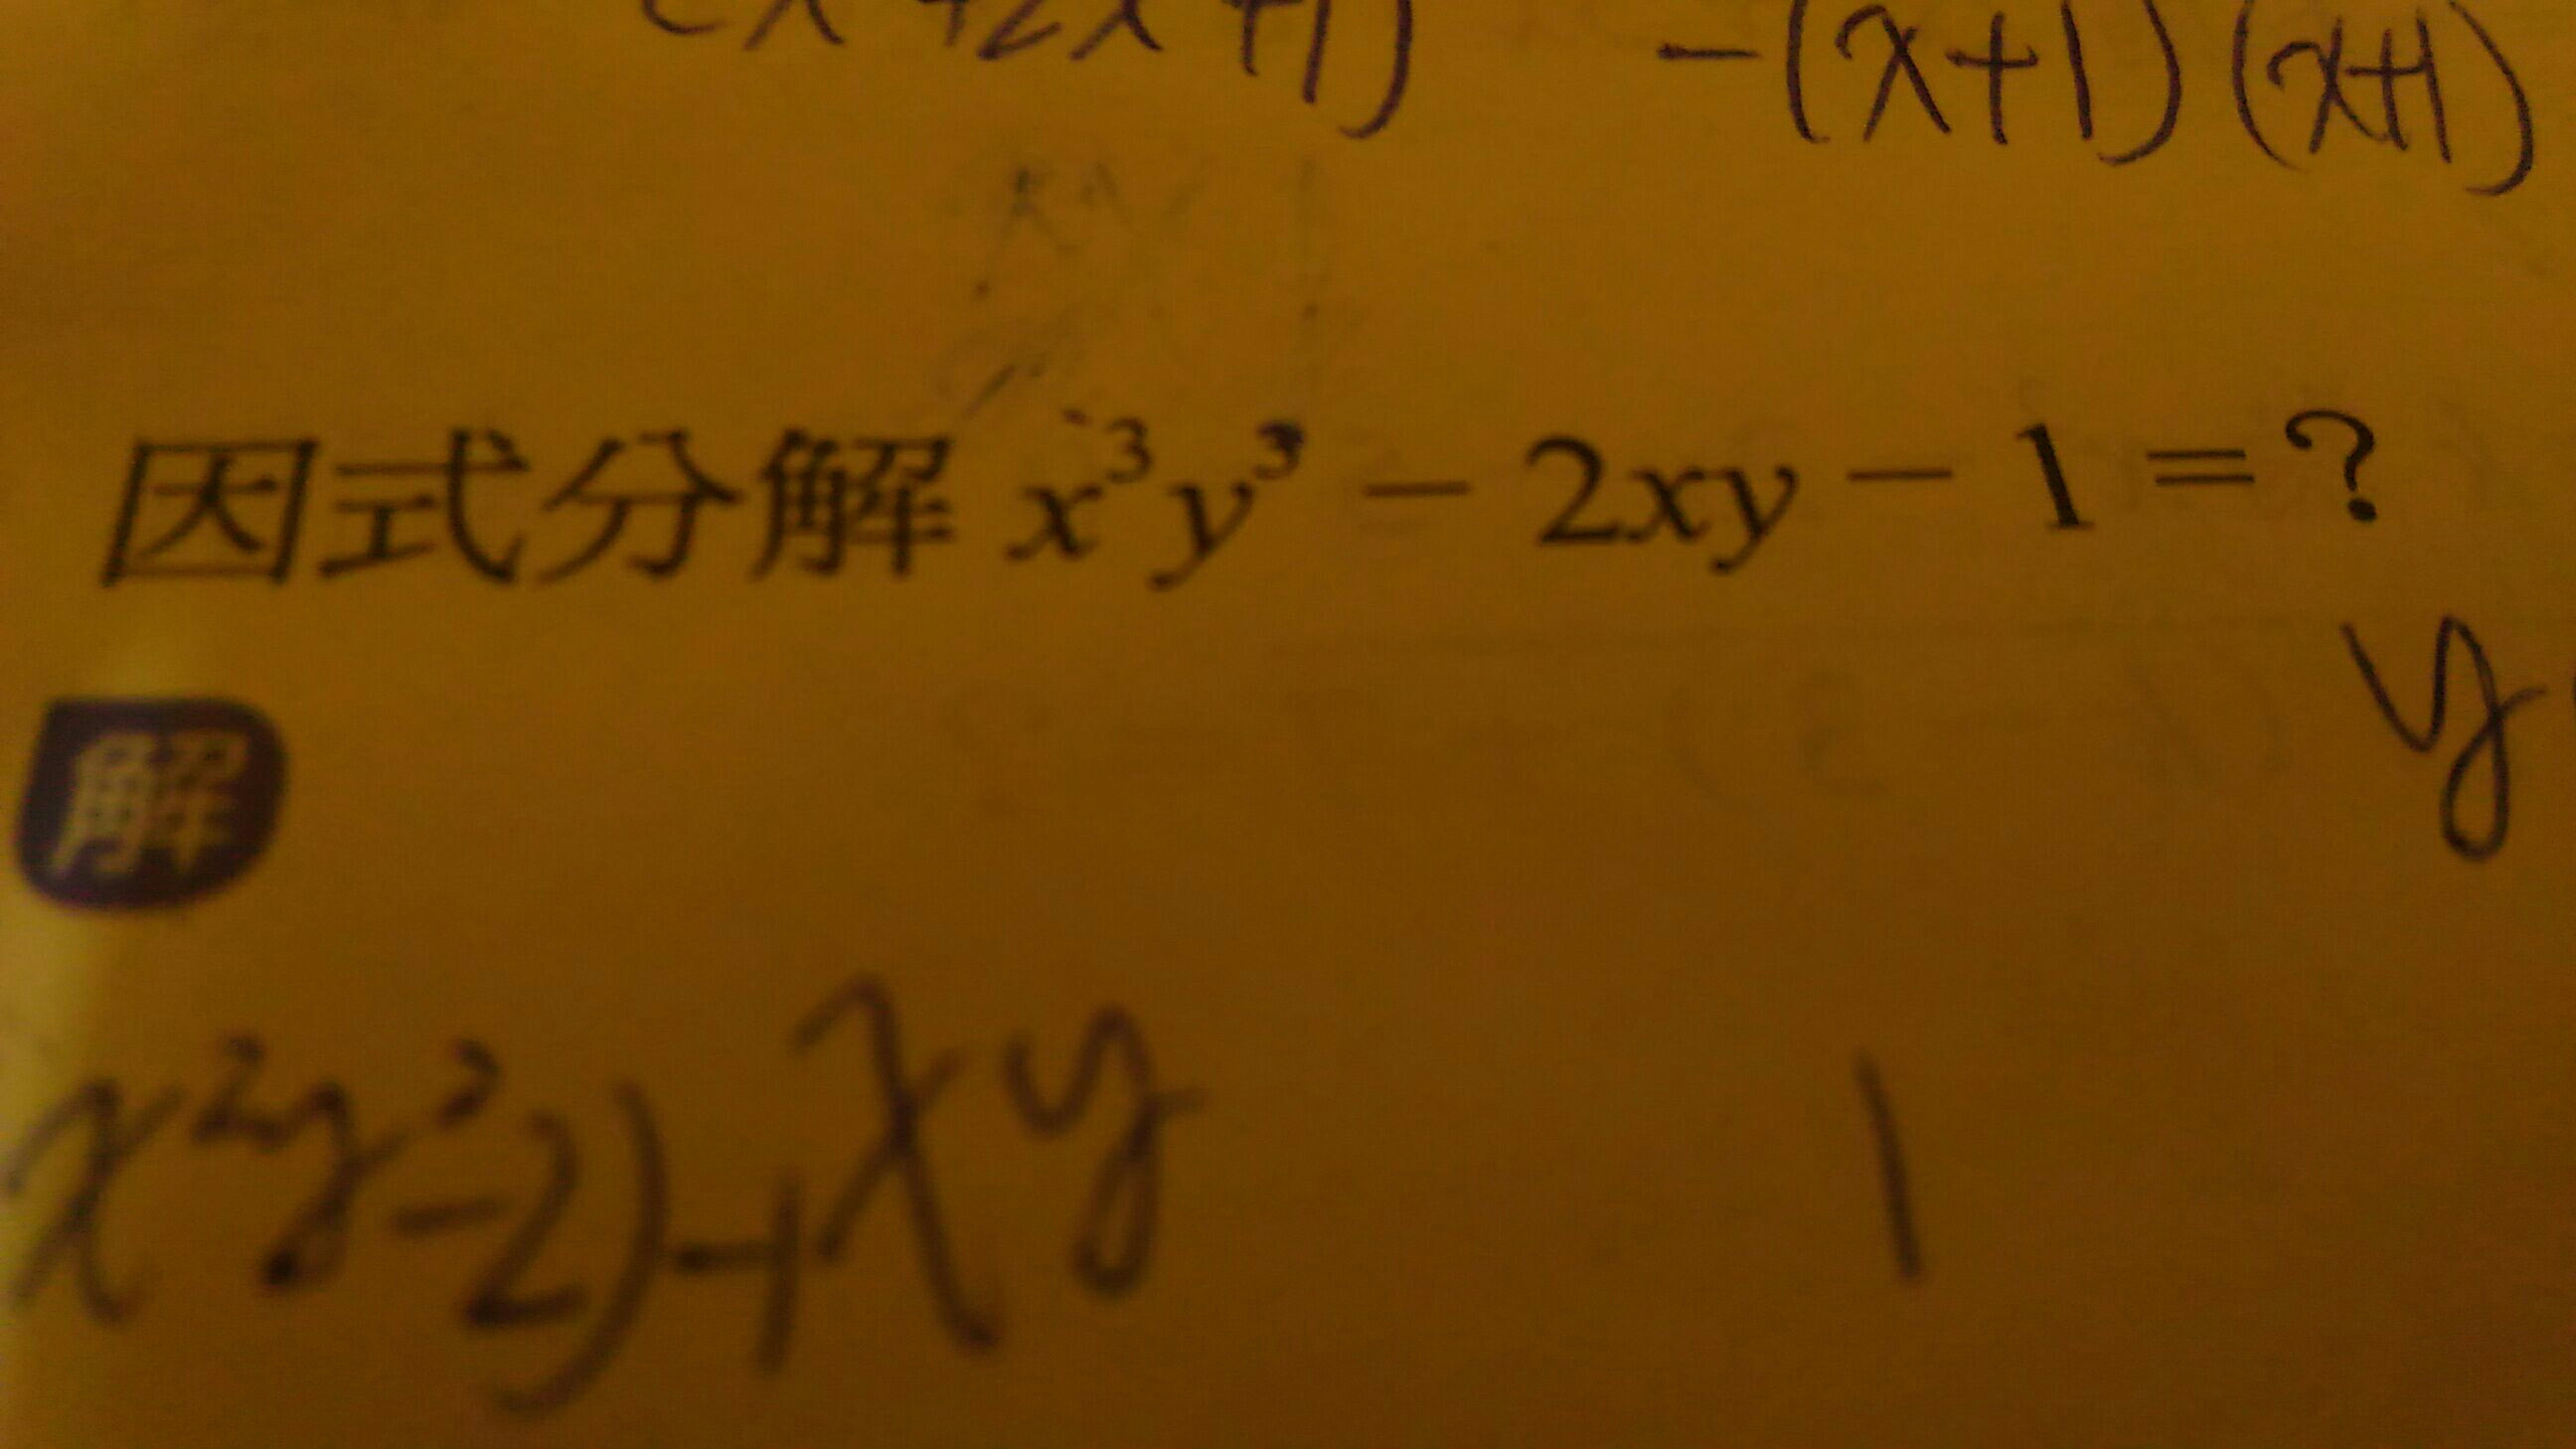 (x²+2x+1) -(x+1)(x+1)
因式分解 x³y³ - 2xy - 1 = ?
y
解
x²y²-2)-1 xy 1